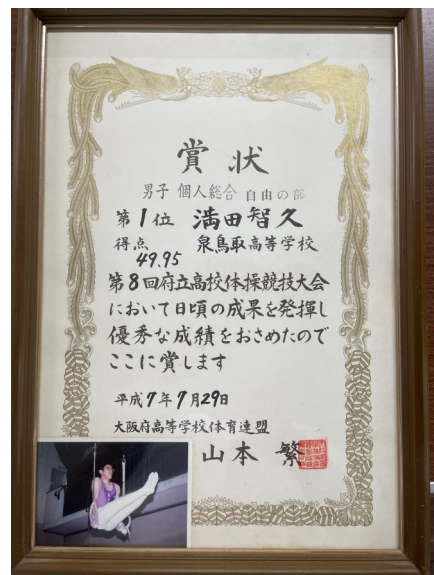 賞状
男子 個人総合 自由の部
第1位 満田智久
得点 泉鳥取高等学校
49.95
第8回府立高校体操競技大会
において日頃の成果を発揮し
優秀な成績をおさめたので
ここに賞します
平成7年7月29日
大阪府高等学校体育連盟
山本 繁